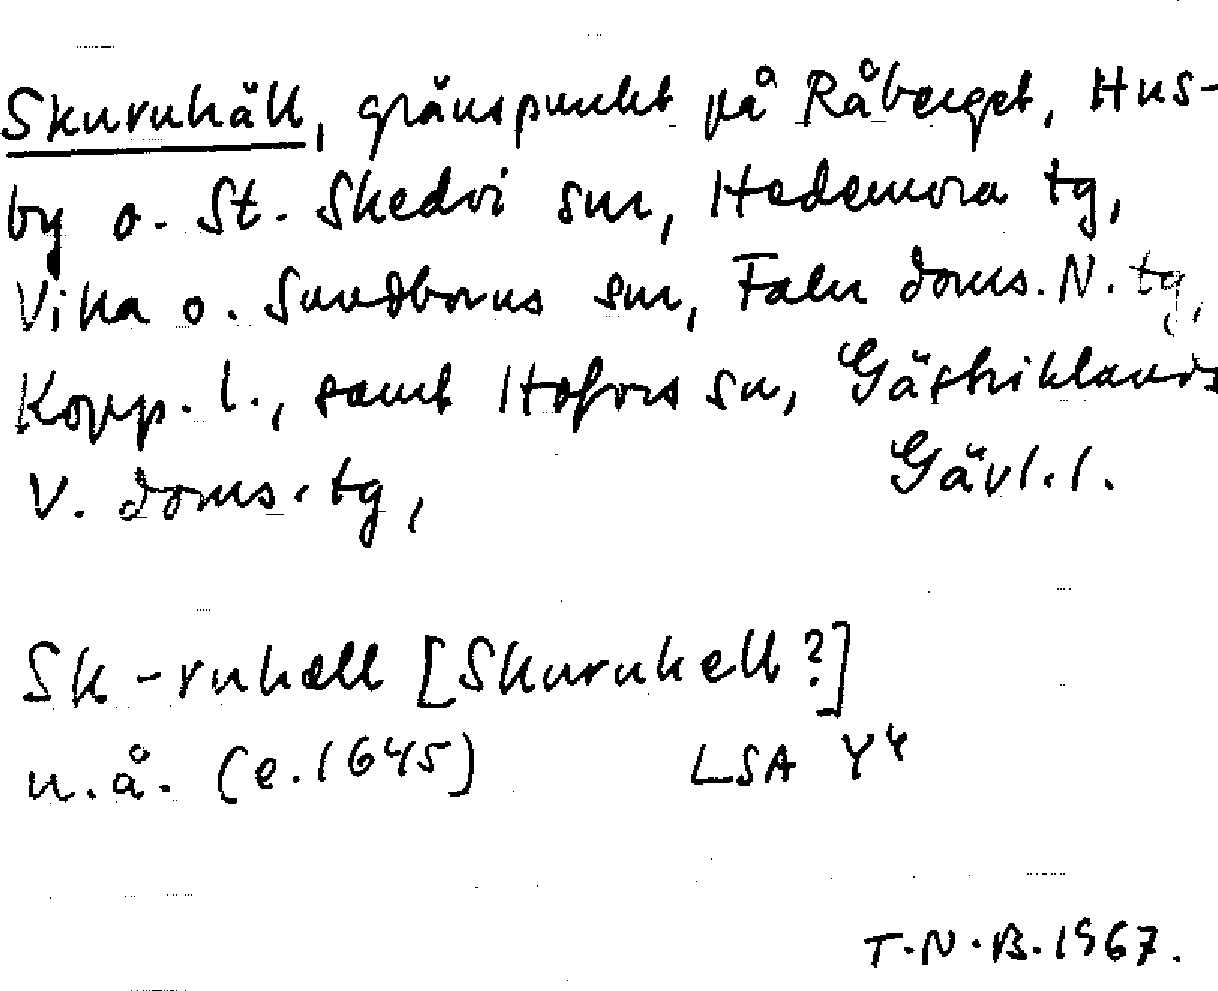 Skuruhäll, gränspunkt på Råberget, Hus-
by o. St. Skedvi snr, Hedemora tg,
Vika o. Sundborns snr, Falu doms. N. tg,
Kopp. l., samt Hofors sn, Gästriklands
V. doms. tg, Gävl. l.
Sk-ruhæll [Skuruhell?]
u.å. (e. 1645) LSA Y4
T.N.B. 1967.